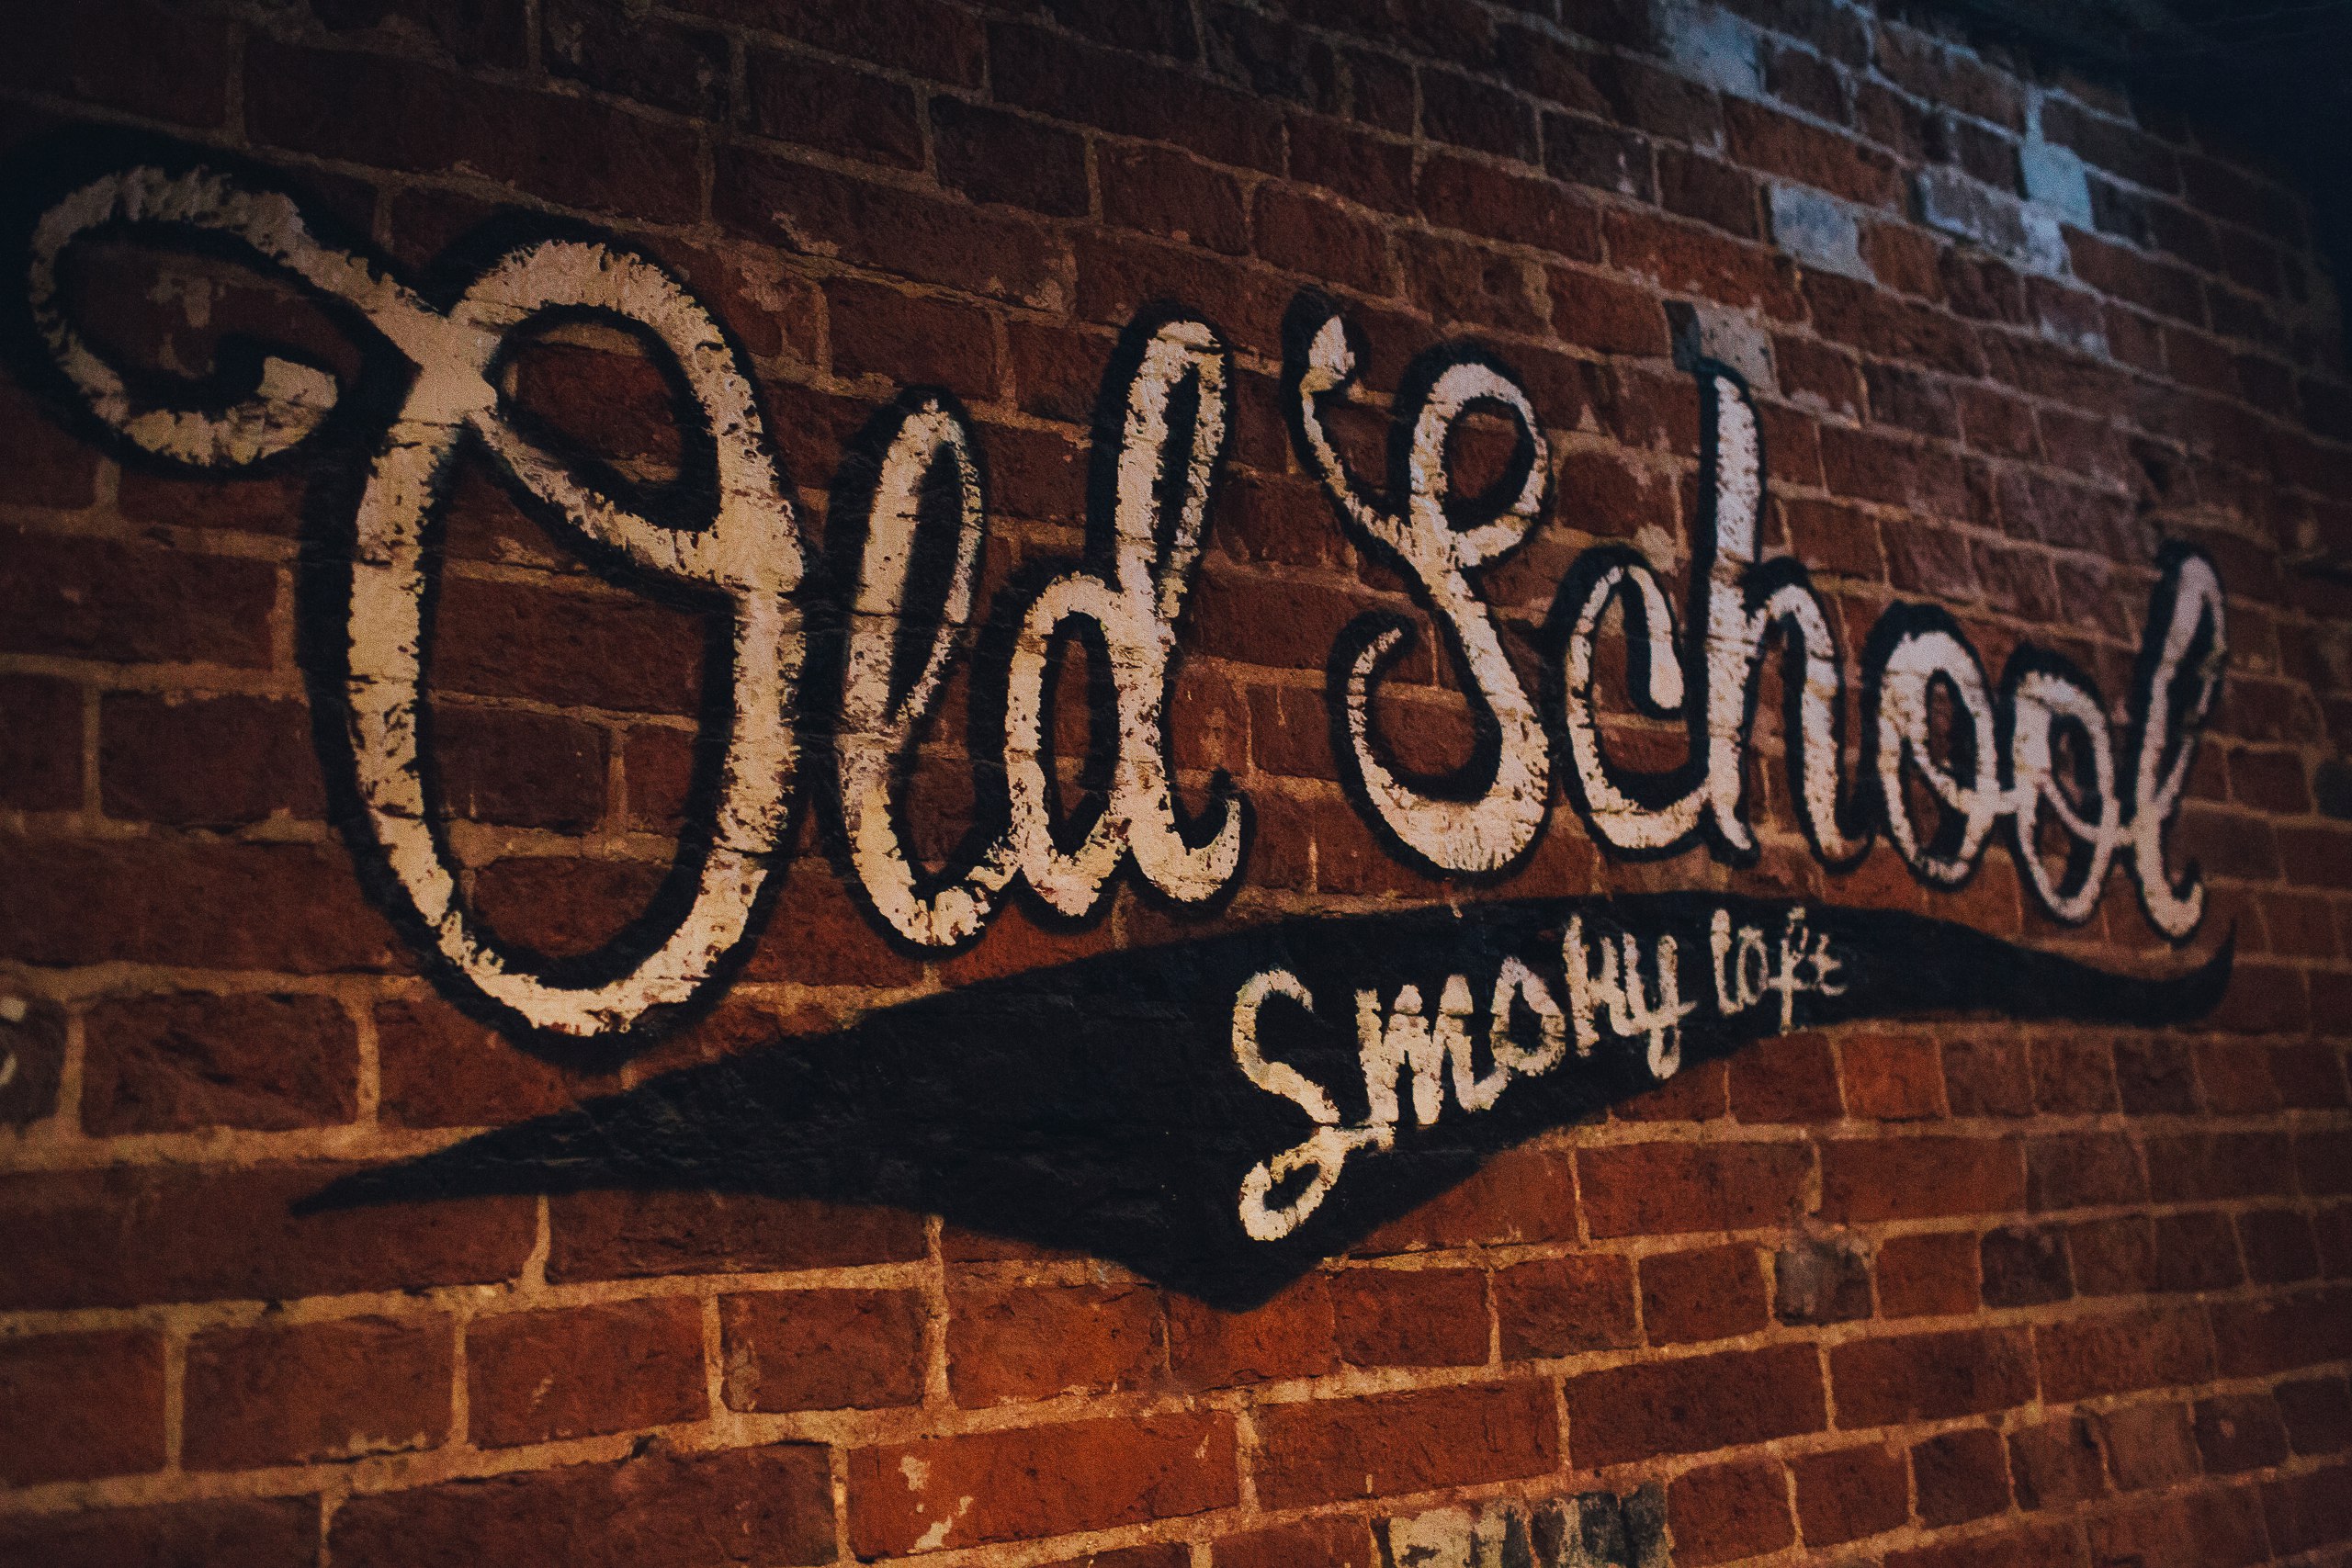 Old School
Smoky loft